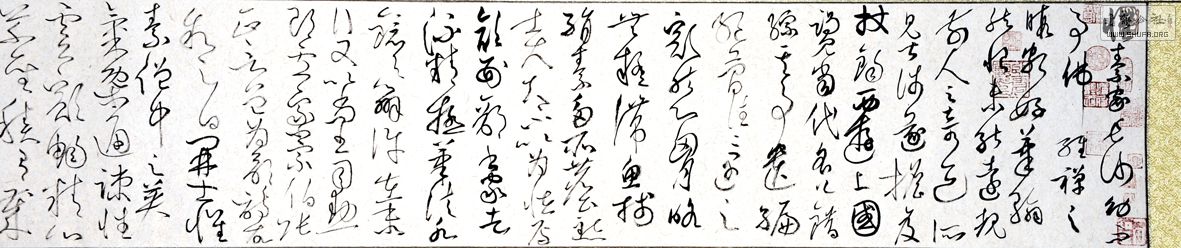 懷素家長沙幼而
事佛經禪之
暇頗好筆翰
然恨未能遠覩
前人之奇迹所
見甚淺遂擔笈
杖錫西遊上國
謁見當代名公錯
綜其事遺編
絕簡往往遇之
豁然心胸略
無疑滯魚牋
絹素多所塵點
士大夫不以為怪焉
顏刑部書家者
流精極筆法水
鏡之辨許在末
行又以尚書司勳
郎盧象小宗伯張
正言曾為歌詩故
敘之曰開士懷
素僧中之英
氣概通疏性
靈豁暢精心
草聖積有歲
WWW.SHUFA.ORG